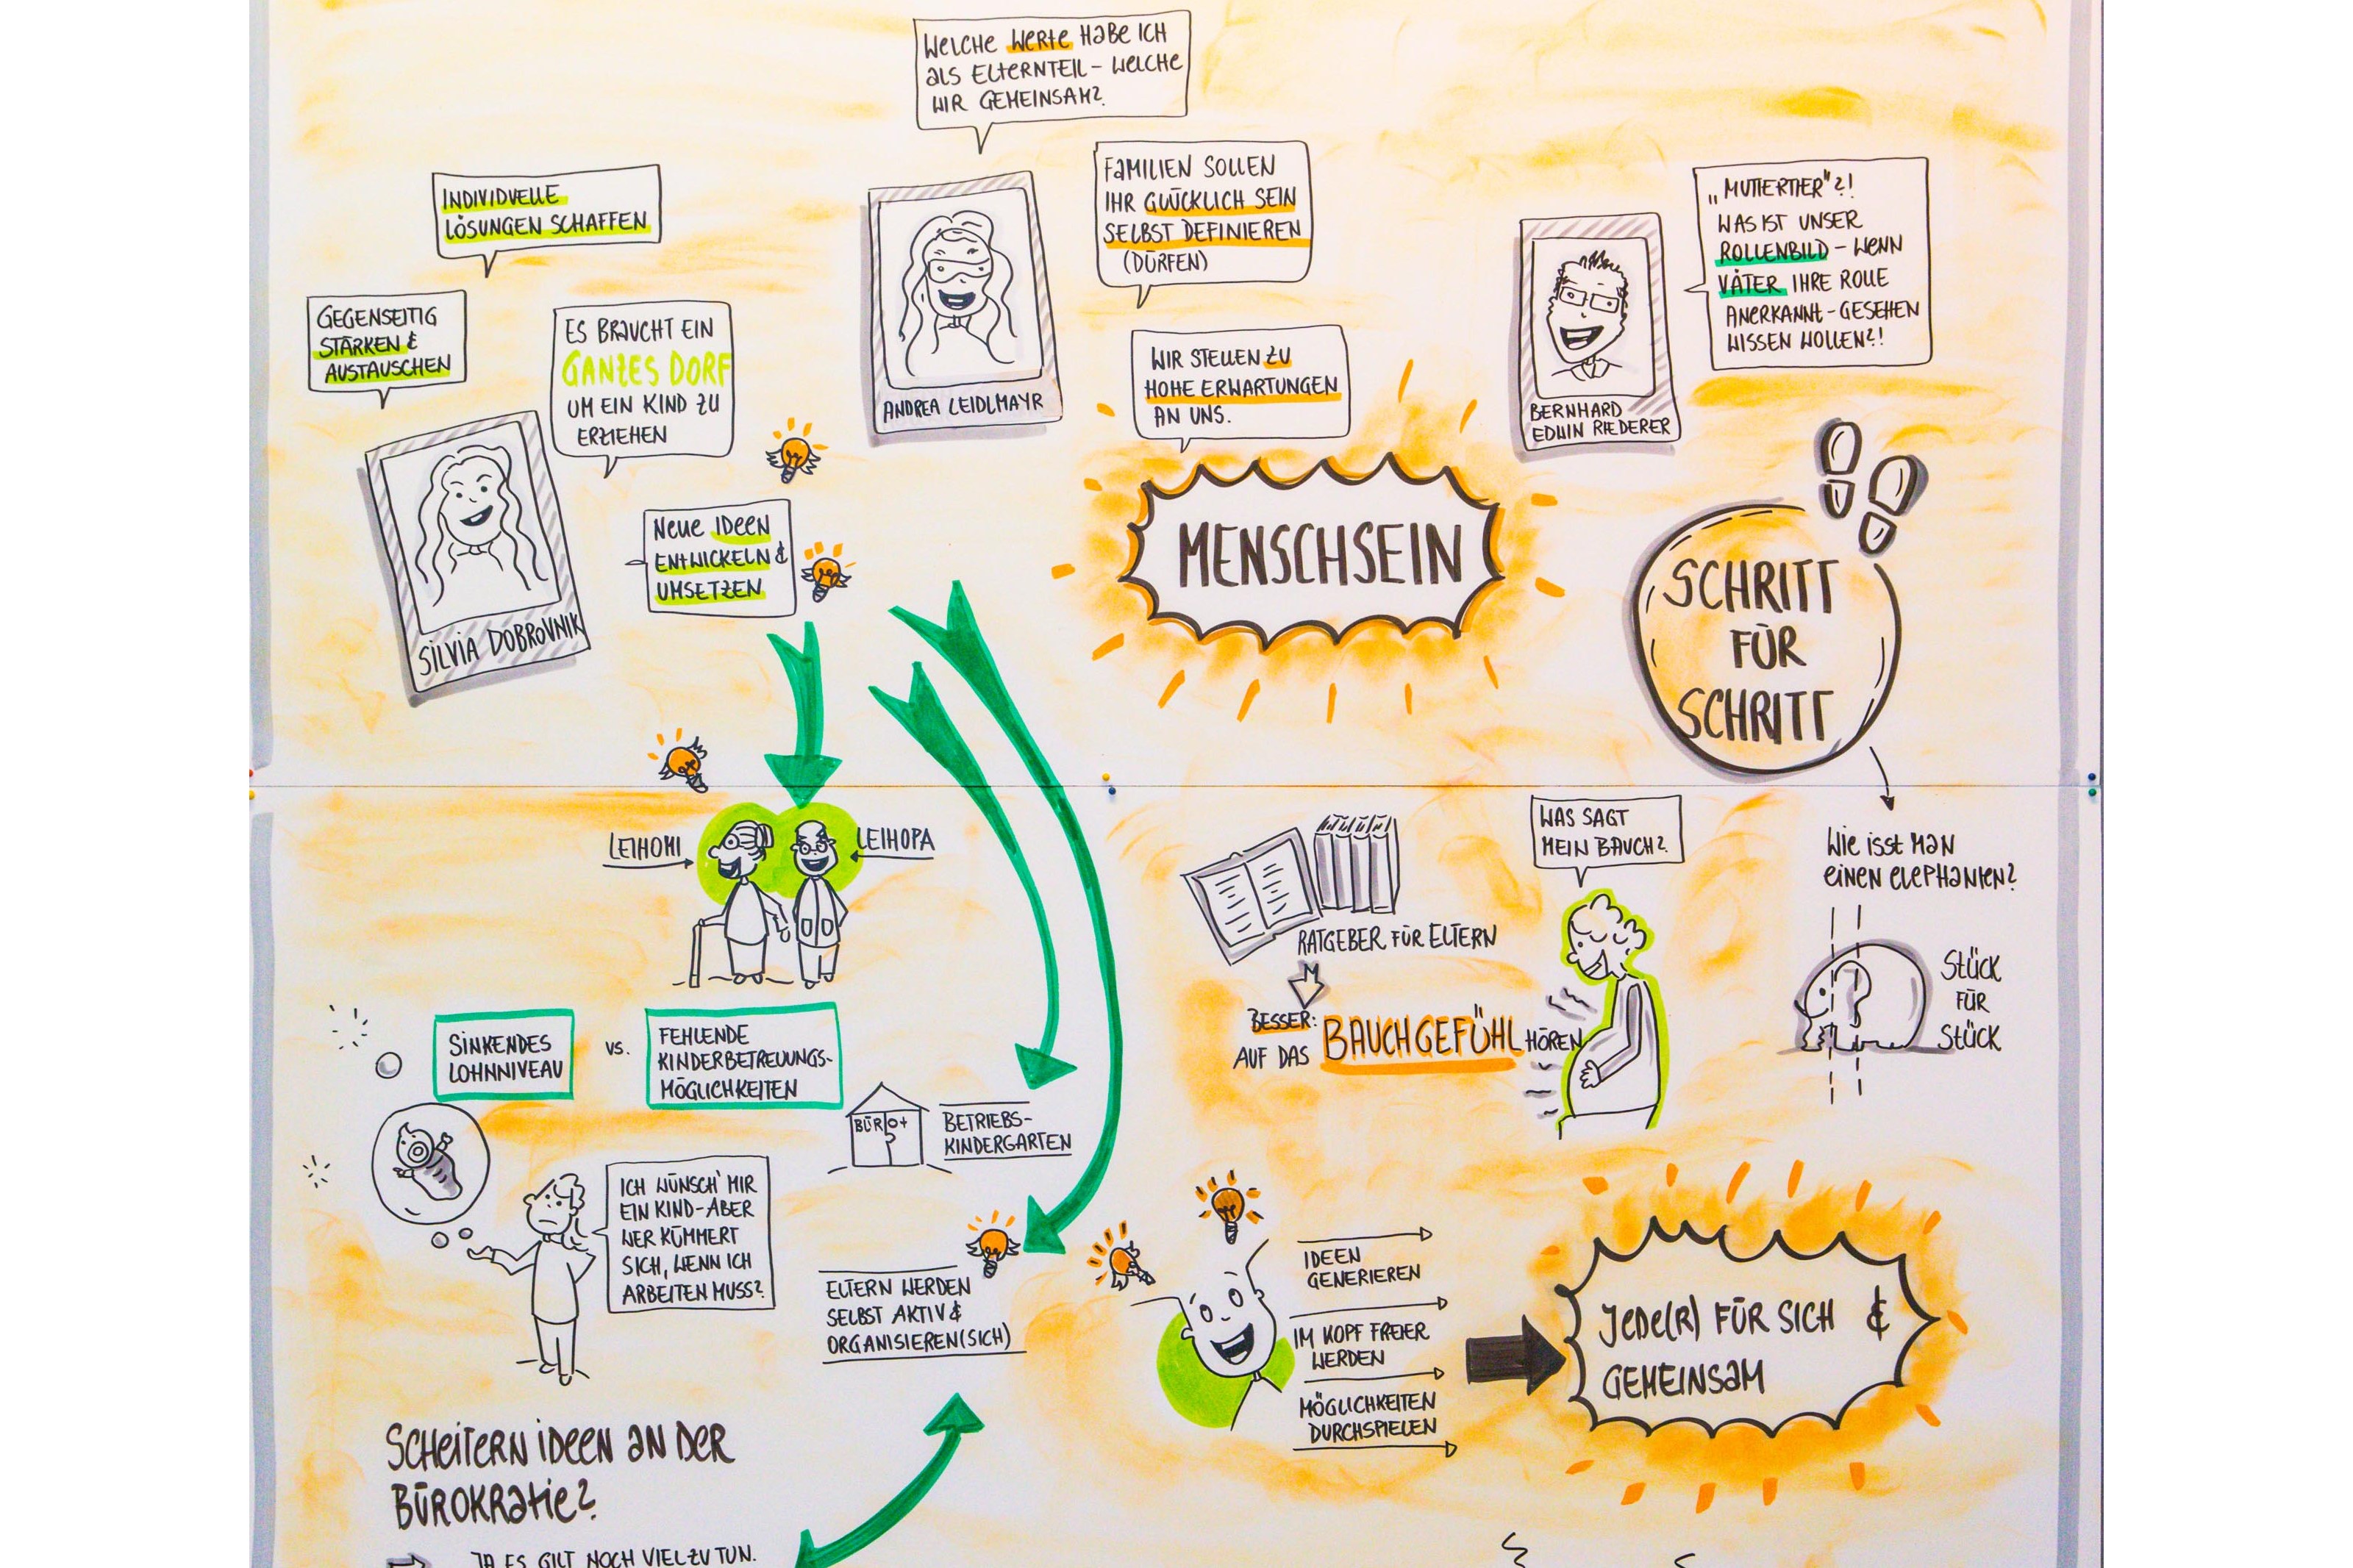 WELCHE WERTE HABE ICH
ALS ELTERNTEIL – WELCHE
WIR GEMEINSAM?
INDIVIDUELLE
LÖSUNGEN SCHAFFEN
GEGENSEITIG
STÄRKEN &
AUSTAUSCHEN
ES BRAUCHT EIN
GANZES DORF
UM EIN KIND ZU
ERZIEHEN
NEUE IDEEN
ENTWICKELN &
UMSETZEN
SILVIA DOBROVNIK
ANDREA LEIDLMAYR
FAMILIEN SOLLEN
IHR GLÜCKLICH SEIN
SELBST DEFINIEREN
(DÜRFEN)
WIR STELLEN ZU
HOHE ERWARTUNGEN
AN UNS.
MENSCHSEIN
BERNHARD
EDWIN RIEDERER
„MUTTERTIER"?!
WAS IST UNSER
ROLLENBILD – WENN
VÄTER IHRE ROLLE
ANERKANNT – GESEHEN
WISSEN WOLLEN?!
SCHRITT
FÜR
SCHRITT
LEIHOMI
LEIHOPA
SINKENDES
LOHNNIVEAU
VS.
FEHLENDE
KINDERBETREUUNGS-
MÖGLICHKEITEN
BÜRO+
BETRIEBS-
KINDERGARTEN
ICH WÜNSCH' MIR
EIN KIND – ABER
WER KÜMMERT
SICH, WENN ICH
ARBEITEN MUSS?
ELTERN WERDEN
SELBST AKTIV &
ORGANISIEREN (SICH)
SCHEITERN IDEEN AN DER
BÜROKRATIE?
JA ES GILT NOCH VIEL ZU TUN.
RATGEBER FÜR ELTERN
BESSER:
AUF DAS BAUCHGEFÜHL HÖREN
WAS SAGT
MEIN BAUCH?
WIE ISST MAN
EINEN ELEPHANTEN?
STÜCK
FÜR
STÜCK
IDEEN
GENERIEREN
IM KOPF FREIER
WERDEN
MÖGLICHKEITEN
DURCHSPIELEN
JEDE(R) FÜR SICH &
GEMEINSAM